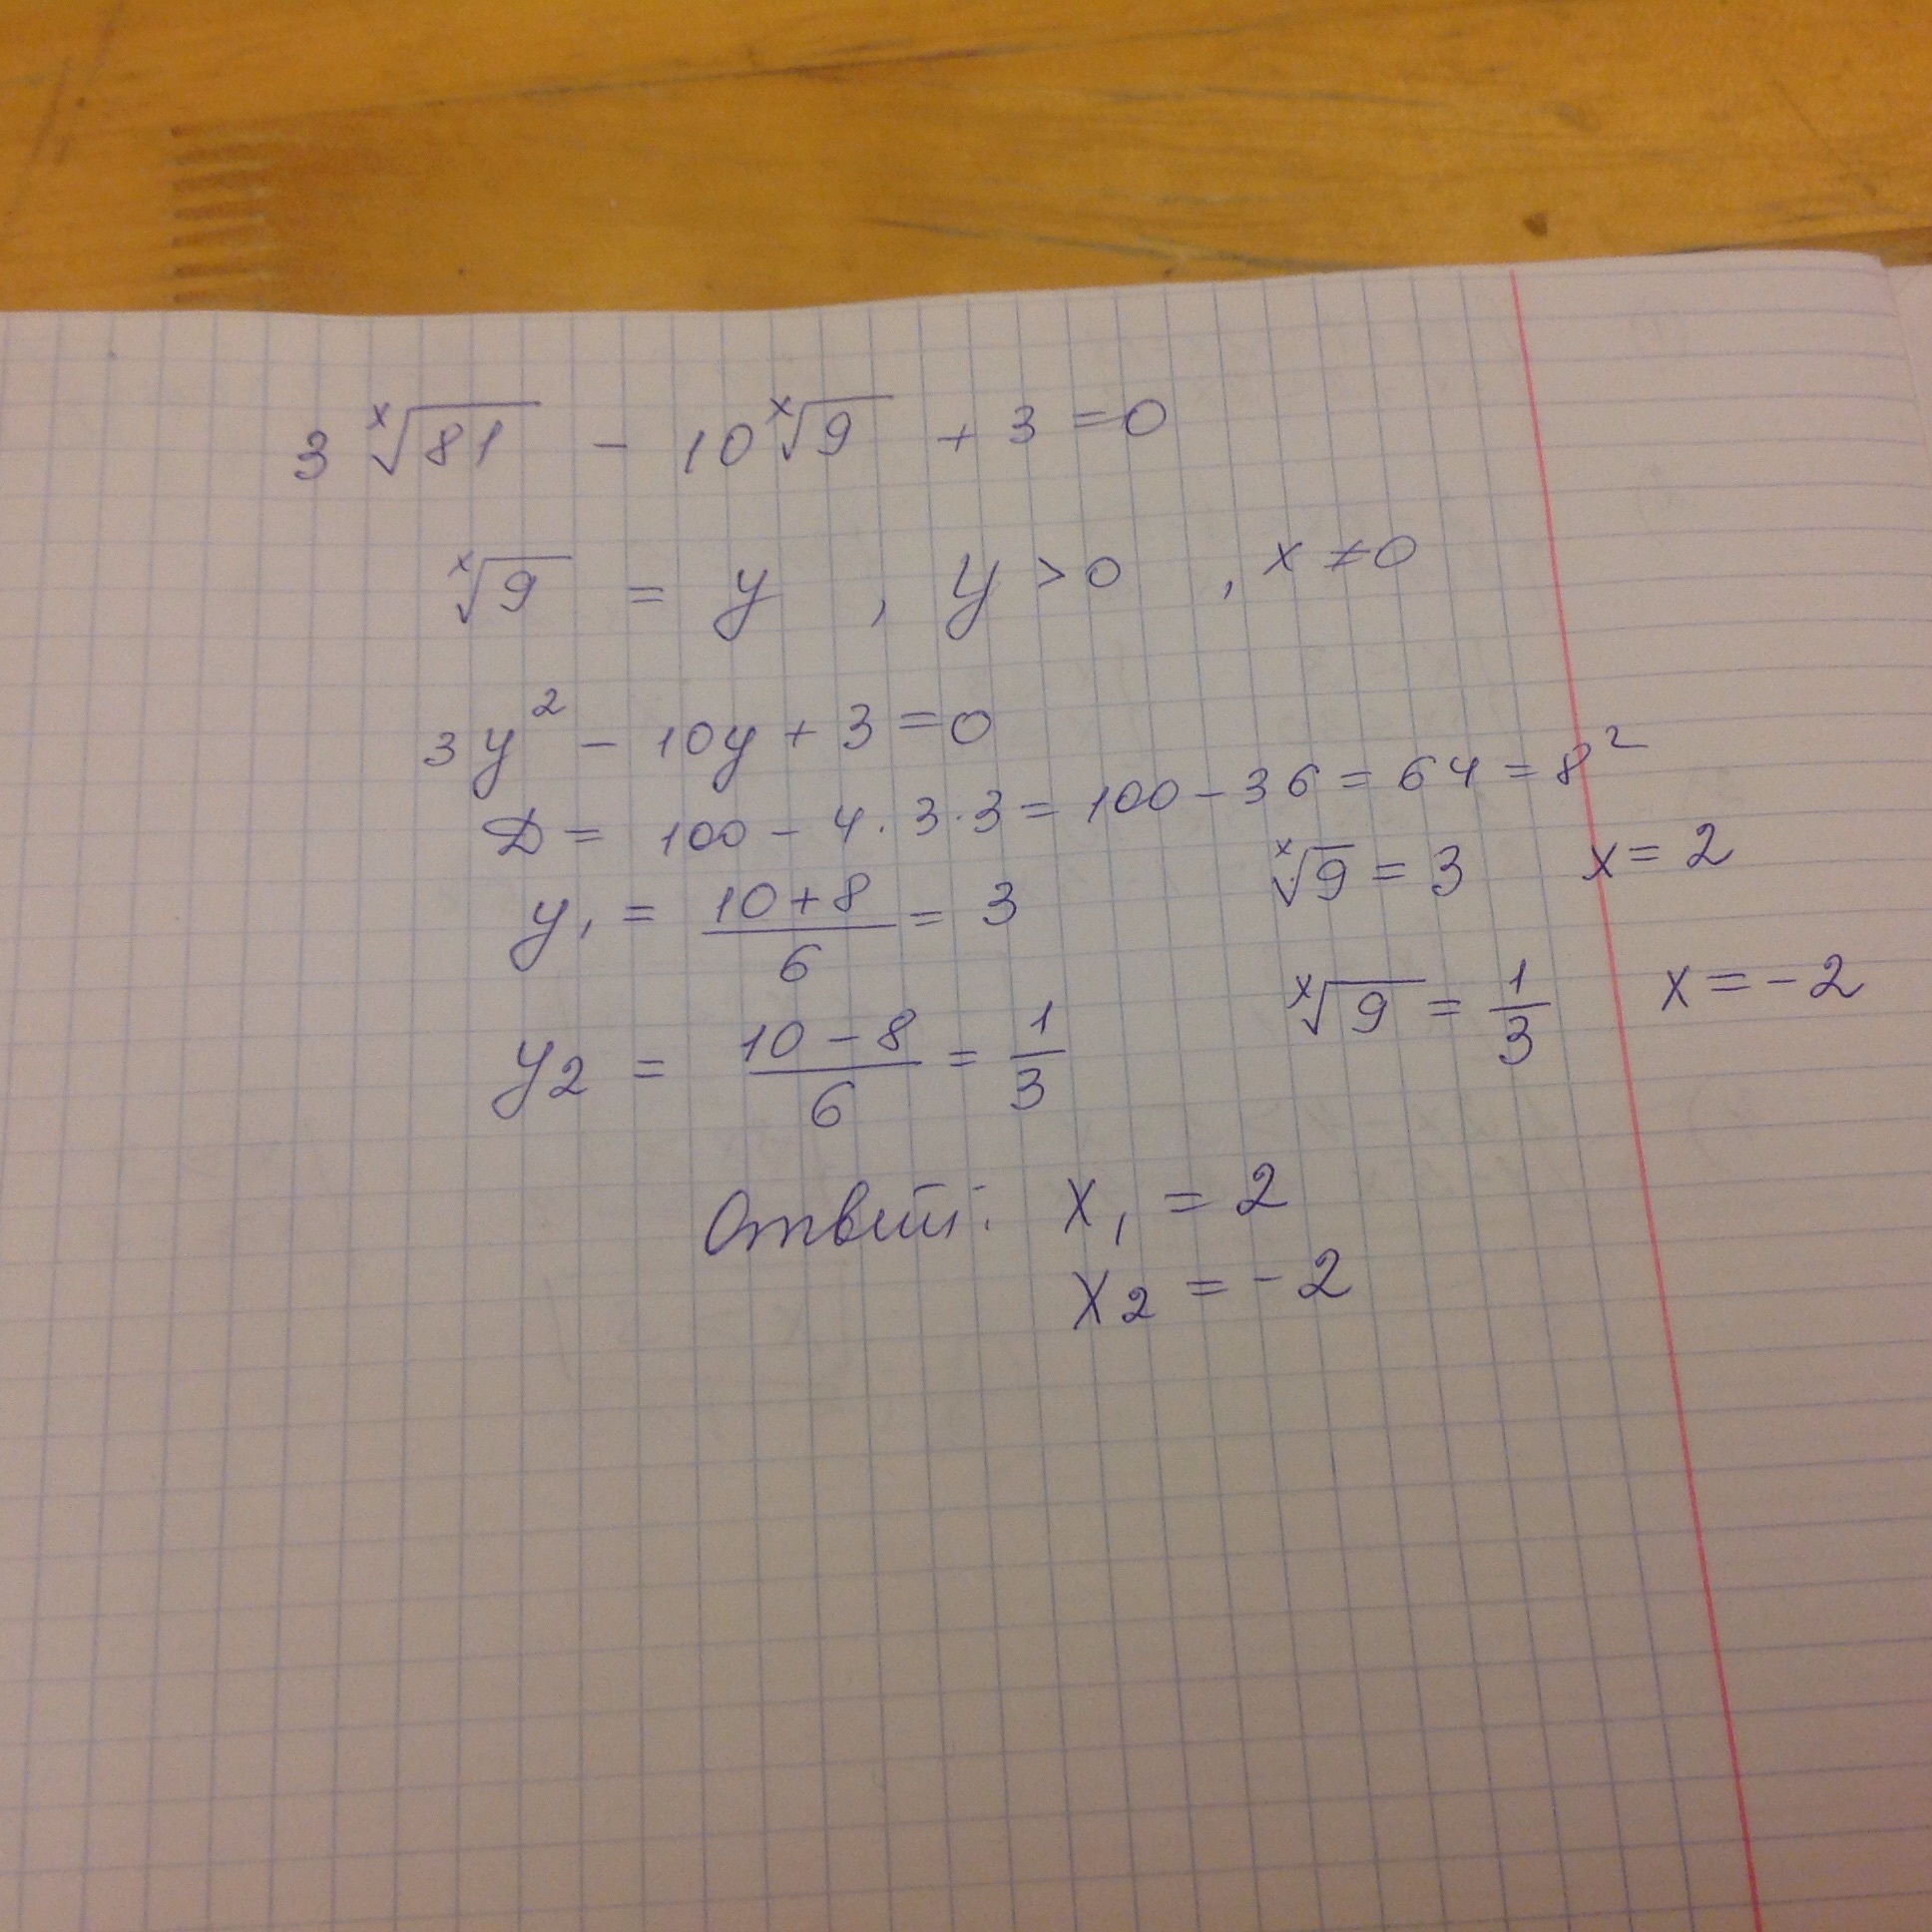 3 ˣ√81 − 10 ˣ√9 + 3 = 0
ˣ√9 = y , y > 0 , x ≠ 0
3y² − 10y + 3 = 0
D = 100 − 4·3·3 = 100 − 36 = 64 = 8²
y₁ = (10+8)/6 = 3
ˣ√9 = 3 x = 2
y₂ = (10−8)/6 = 1/3
ˣ√9 = 1/3 x = −2
Ответ: x₁ = 2
x₂ = −2